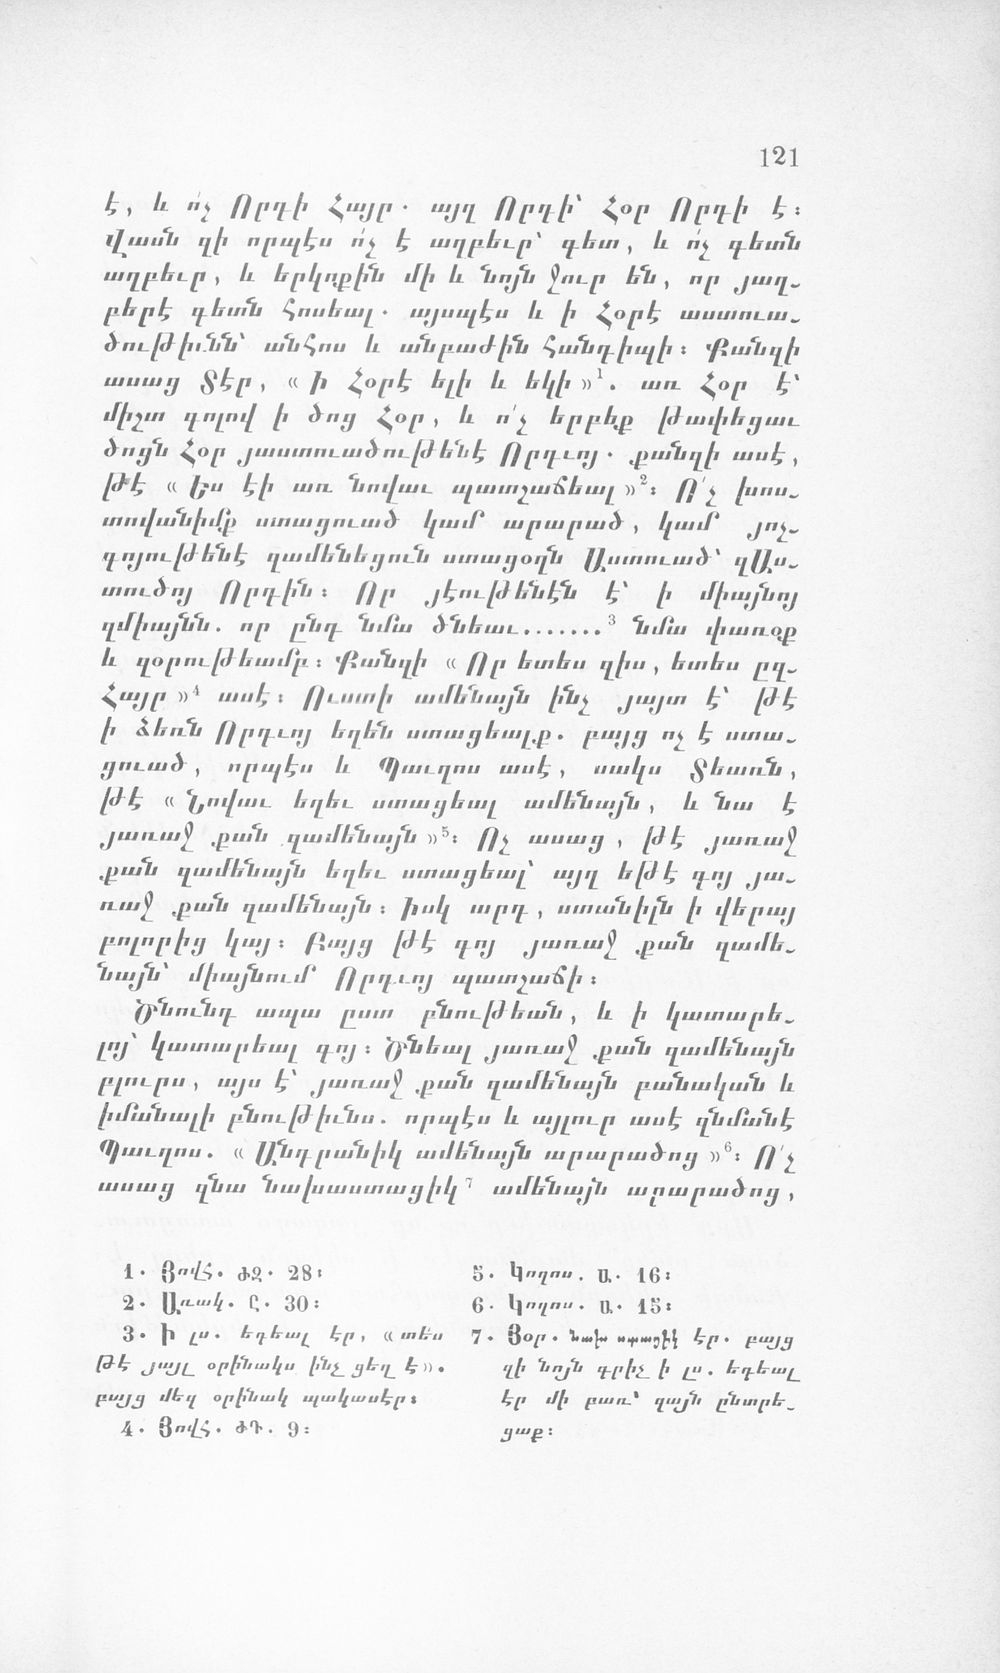 121
է, և ո՛չ Որդի Հայր. այղ Որդի՝ Հօր Որդի է։
Վասն զի որպէս ո՛չ է աղբեւր՝ գետ, և ո՛չ գետն
աղբեւր, և երկոքին մի և նոյն ջուր են, որ յաղ֊
բերէ գետն հոսեալ. այսպէս և ի Հօրէ աստուա֊
ծութիւնն՝ անհոս և անբաժին հանդիպի։ Քանզի
ասաց Տէր, «Ի Հօրէ ելի և եկի»1. առ Հօր է՝
միշտ գոլով ի ծոց Հօր, և ո՛չ երբեք թափեցաւ
ծոցն Հօր յաստուածութենէ Որդւոյ. քանզի ասէ,
թէ «Ես էի առ նովաւ պատշաճեալ»2։ Ո՛չ խոս֊
տովանիմք ստացուած կամ արարած, կամ յոչ֊
գոյութենէ զամենեցուն ստացօղն Աստուած՝ զԱս֊
տուծոյ Որդին։ Որ յէութենէն է՝ ի միայնոյ
զմիայնն. որ ընդ նմա ծնեաւ.......3 նմա փառօք
և զօրութեամբ։ Քանզի «Որ ետես զիս, ետես ըզ֊
Հայր»4 ասէ։ Ուստի ամենայն ինչ յայտ է՝ թէ
ի ձեռն Որդւոյ եղեն ստացեալք. բայց ոչ է ստա֊
ցուած, որպէս և Պաւղոս ասէ, սակս Տեառն,
թէ «Նովաւ եղեւ ստացեալ ամենայն, և նա է
յառաջ քան զամենայն»5։ Ոչ ասաց, թէ յառաջ
քան զամենայն եղեւ ստացեալ՝ այղ եթէ գոյ յա֊
ռաջ քան զամենայն։ Իսկ արդ, ստանիլն ի վերայ
բոլորից կայ։ Բայց թէ գոյ յառաջ քան զամե֊
նայն՝ միայնում Որդւոյ պատշաճի։
Ծնունդ ապա ըստ բնութեան, և ի կատարե֊
լոյ՝ կատարեալ գոյ։ Ծնեալ յառաջ քան զամենայն
բլուրս, այս է՝ յառաջ քան զամենայն բանական և
իմանալի բնութիւնս. որպէս և այլուր ասէ զնմանէ
Պաւղոս. «Անդրանիկ ամենայն արարածոց»6։ Ո՛չ
ասաց զնա նախաստացիկ7 ամենայն արարածոց,
1. Յովհ. ԺԶ. 28։
2. Առակ. Ը. 30։
3. Ի լս. եդեալ էր, «տես
թէ յայլ օրինակս ինչ ցեղ է».
բայց մեզ օրինակ պակասէր։
4. Յովհ. ԺԴ. 9։
5. Կողոս. Ա. 16։
6. Կողոս. Ա. 15։
7. Յօր. նախ ստացիկ էր. բայց
զի նոյն գրիչ ի լս. եդեալ
էր մի բառ՝ զայն ընտրե֊
ցաք։